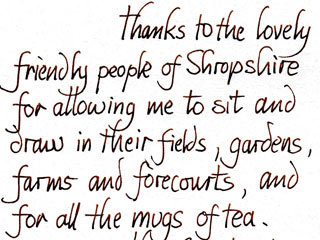 Thanks to the lovely
friendly people of Shropshire
for allowing me to sit and
draw in their fields, gardens,
farms and forecourts, and
for all the mugs of tea.